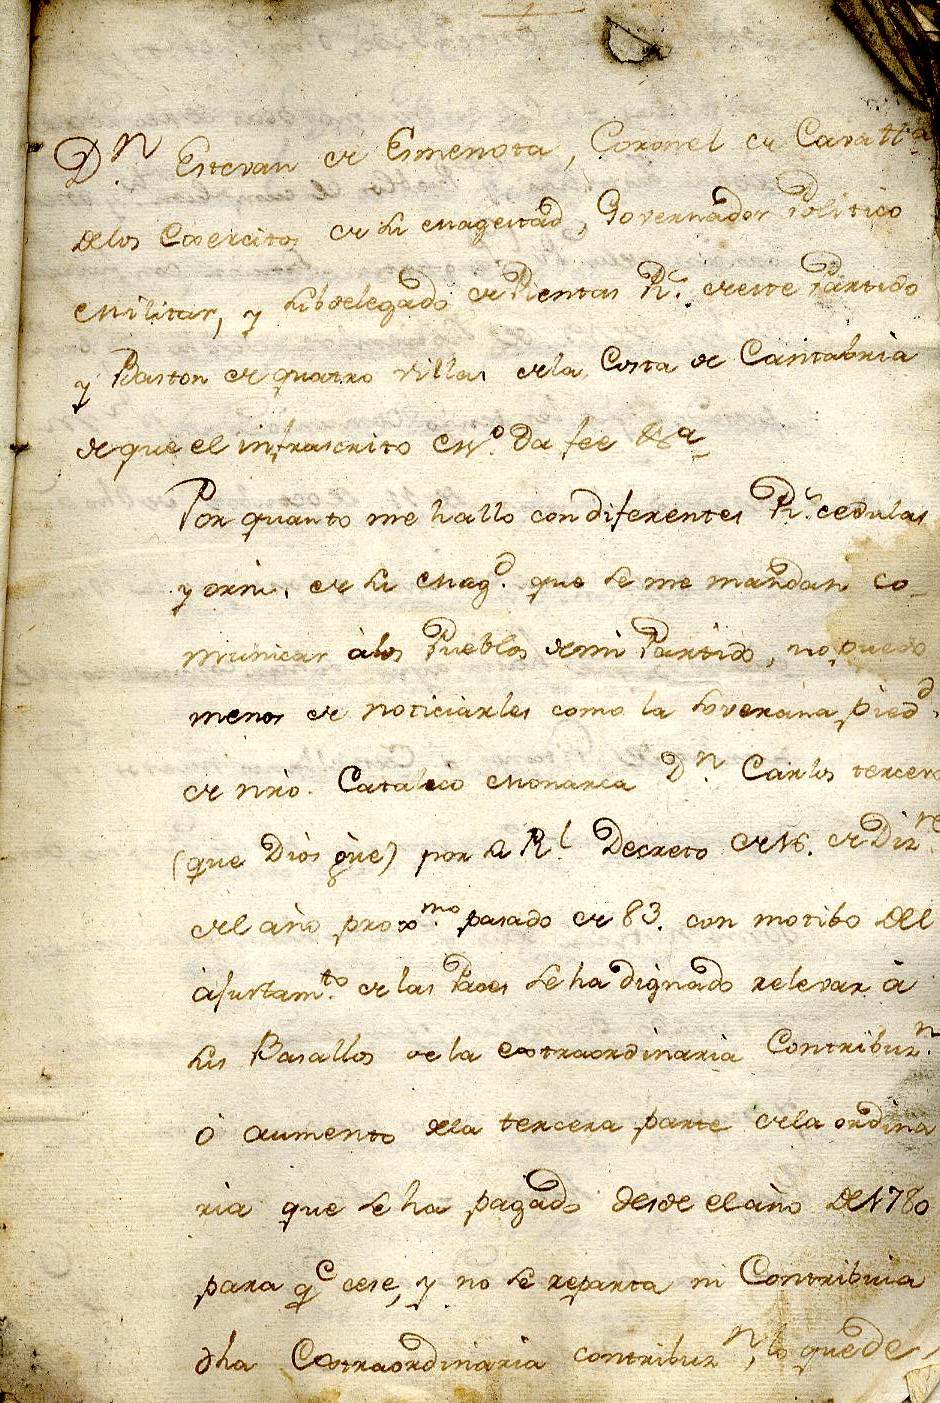 Dn. Estevan de Esmenota, Coronel de Cavallª.
de los Exercitos de su Magestad, Governador Politico
Militar, y subdelegado de Rentas Rs. de este Partido
y Baston de quatro villas de la Costa de Cantabria
de que el infrascrito Essno. da fee &a.
Por quanto me hallo con diferentes Rs. cedulas
y orns. de su Magd. que se me mandan co-
municar à los Pueblos de mi Partido, no puedo
menos de noticiarles como la soverana pied.d
de nro. Catolico Monarca Dn. Carlos tercero
(que Dios gûe) por su Rl. Decreto de 16. de Dizre.
del año proxmo. pasado de 83. con motibo del
ajustamto. de las Paces se ha dignado relevar à
sus Basallos de la extraordinaria Contribuzn.
ó aumento de la tercera parte de la ordina
ria que se ha pagado desde el año de 1780
para qe. cese, y no se reparta ni Contribuia
dha Extraordinaria contribuzn., lo que de